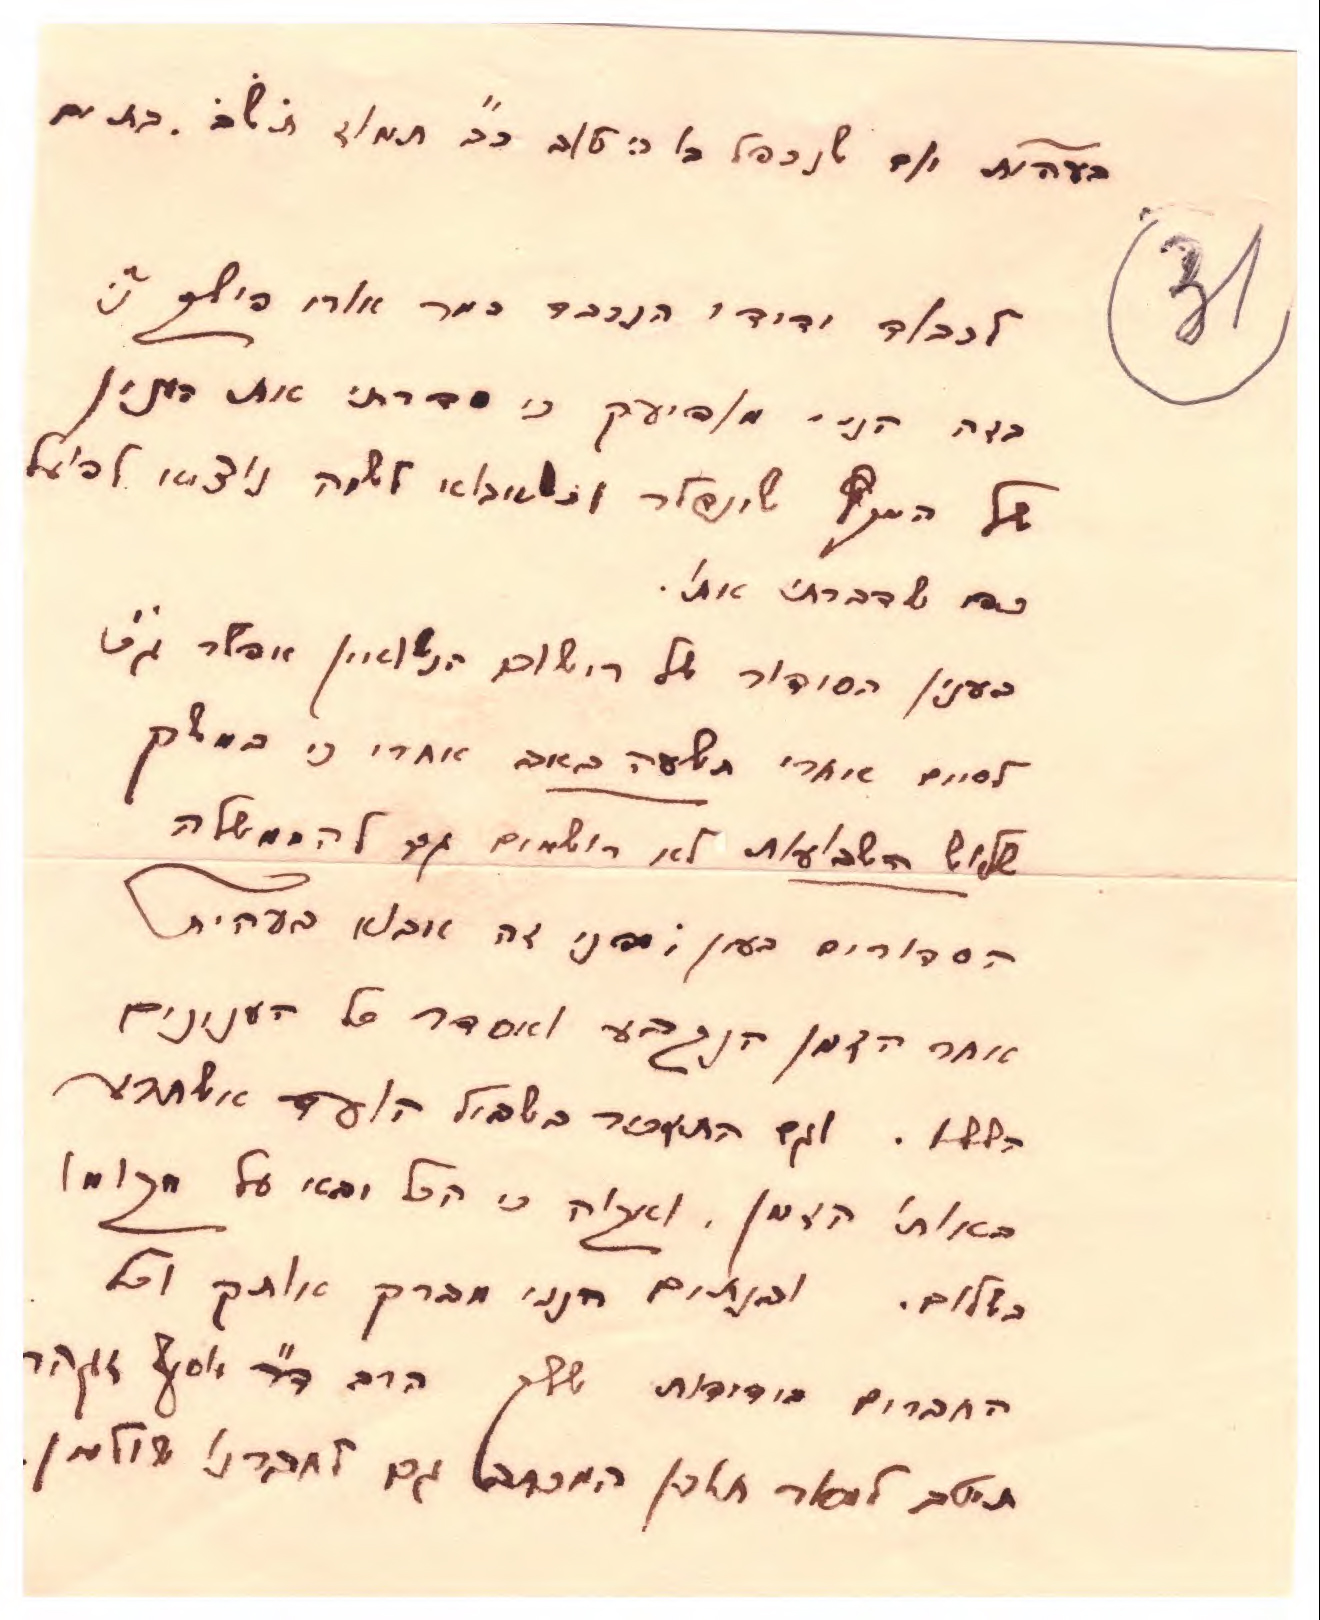 בעהית יום שנכפל בו כי טוב כ"ב תמוז תשב. בת ים
31
לכבוד ידידי הנכבד כמר אורי ני
בזה הנני מודיעך כי סדרתי את הענין
של שינפלר לשמה לפועל
כפי שדברתי אתו.
בענין הסידור של רישום הנשואין אפשר
לסיים אחרי תשעה באב אחרי כי במשך
שלוש השבועות לא רושמים גם להממשלה
הסדורים בעון ומפני זה אבוא בעהית
אחר הזמן הנקבע ואסדר כל הענינים
הללו. וגם בשביל הועד
באותו הזמן. ואקוה כי הכל יבא על מקומו
בשלום. ובנתים הנני מברך אותך וכל
החברים בידידות שלך הרב ד"ר יוסף זוהר
תיטב למסור תוכן המכתב גם לחברנו שולמן.